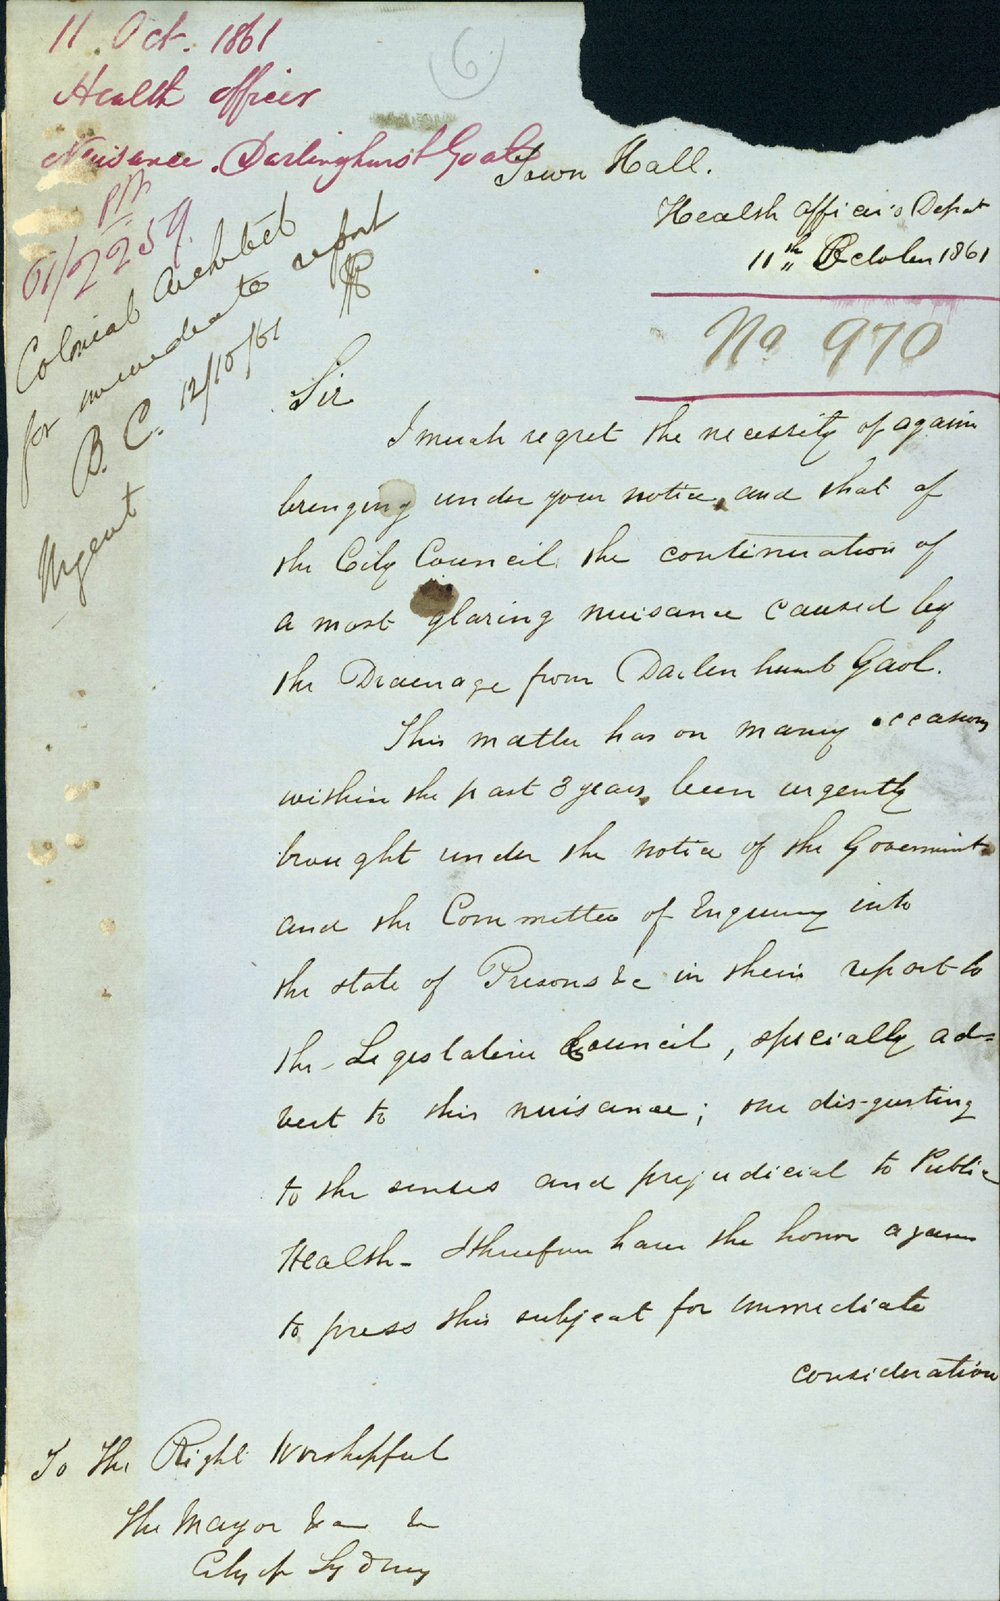 11 Oct. 1861
6
Health officer
Nuisance. Darlinghurst Gaol
Town Hall.
Health Officer's Depat
11th October 1861
61/2259
No 970
Colonial Architect
for immediate report
B. C. 12/10/61
Urgent
Sir
I much regret the necessity of again
bringing under your notice, and that of
the City Council, the continuation of
a most glaring nuisance caused by
the Drainage from Darlinhurst Gaol.
This matter has on many occasions
within the past 3 years, been urgently
brought under the notice of the Government
and the Committee of Enquiry into
the state of Prisons &c in their report to
the Legislative Council, specially ad=
vert to this nuisance; one dis-gusting
to the senses and prejudicial to Public
Health - I therefore have the honor again
to press this subject for immediate
consideration
To The Right Worshipful
The Mayor &c &c
City of Sydney